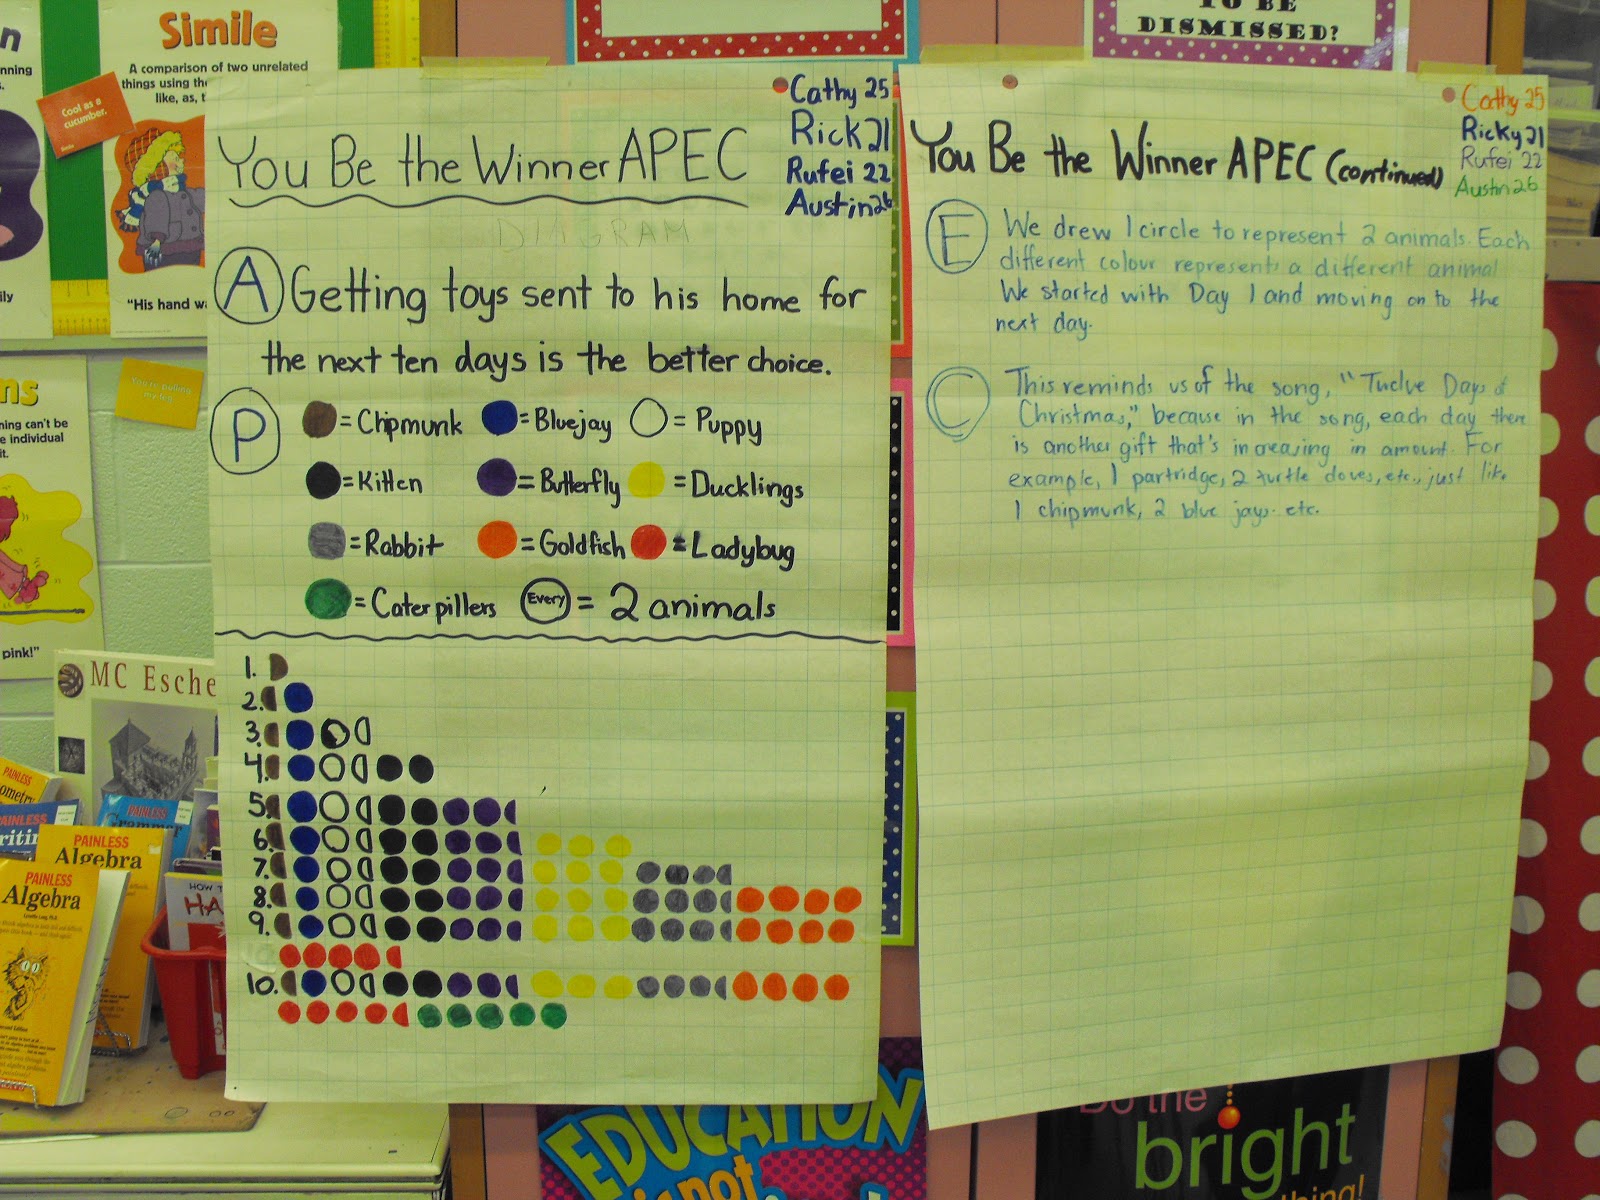 Simile
A comparison of two unrelated
things using the
like, as,
Cool as a
cucumber.
"His hand
nning
ily
ns
ning can't be
e individual
it.
pink!"
TO BE
DISMISSED?
Cathy 25
Rick 21
Rufei 22
Austin 26
You Be the Winner APEC
DIAGRAM
A Getting toys sent to his home for
the next ten days is the better choice.
P = Chipmunk = Bluejay = Puppy
= Kitten = Butterfly = Ducklings
= Rabbit = Goldfish = Ladybug
= Caterpillers Every = 2 animals
1.
2.
3.
4.
5.
6.
7.
8.
9.
10.
Cathy 25
Ricky 21
Rufei 22
Austin 26
You Be the Winner APEC (continued)
E We drew 1 circle to represent 2 animals. Each
different colour represents a different animal
We started with Day 1 and moving on to the
next day.
C This reminds us of the song, "Twelve Days of
Christmas," because in the song, each day there
is another gift that's increasing in amount. For
example, 1 partridge, 2 turtle doves, etc., just like
1 chipmunk, 2 blue jays. etc.
MC Esche
PAINLESS
PAINLESS
PAINLESS
Grammar
PAINLESS
Algebra
PAINLESS
Algebra
HOW T
HA
EDUCATION
is not
Do the
bright
thing!